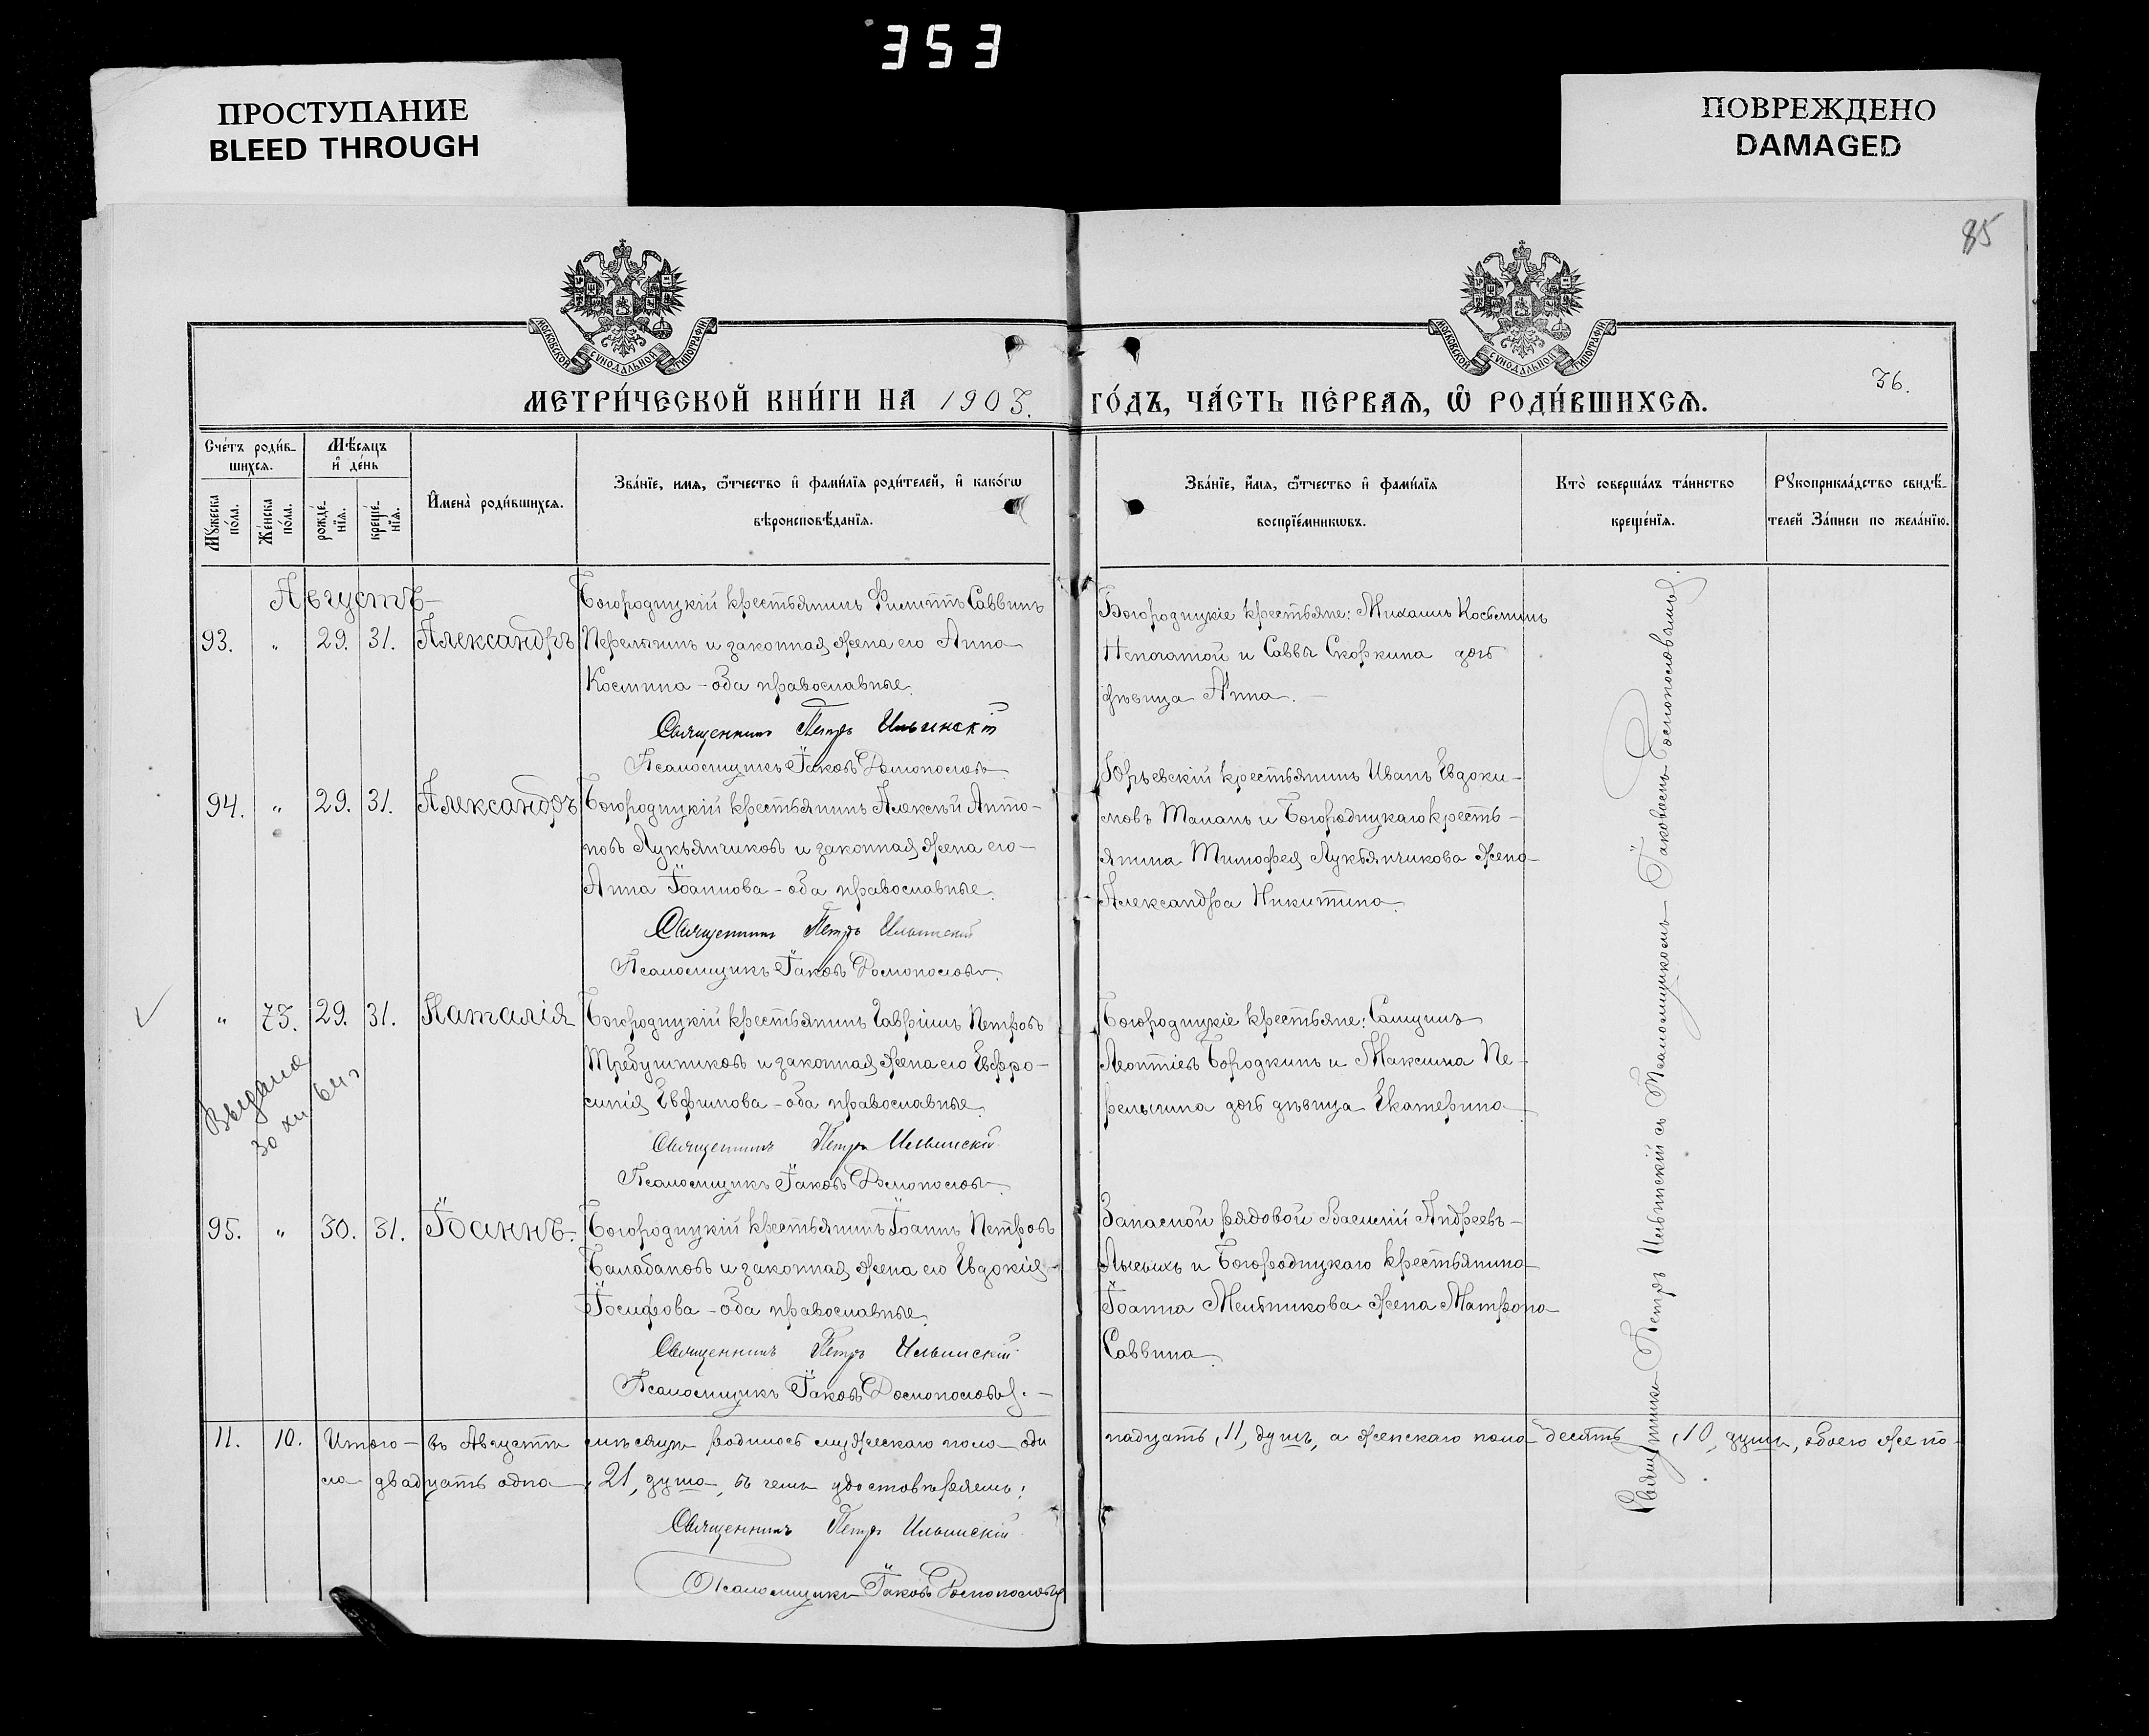 353
ПРОСТУПАНИЕ
BLEED THROUGH
ПОВРЕЖДЕНО
DAMAGED
85
МОСКОВСКОЙ СѴНОДАЛЬНОЙ ТИПОГРАФІИ
МОСКОВСКОЙ СѴНОДАЛЬНОЙ ТИПОГРАФІИ
36.
МЕТРИ́ЧЕСКОЙ КНИ́ГИ НА 1903.
ГО́ДЪ, ЧА́СТЬ ПЕ́РВАѦ, Ѿ РОДИ́ВШИХСѦ.
Сче́тъ роди́вшихсѧ.
Мѣ́сѧцъ и҆ де́нь
Мꙋ́жеска по́ла.
Же́нска по́ла.
рожде́нїѧ.
креще́нїѧ.
И҆мена̀ роди́вшихсѧ.
Зва́нїе, имѧ, ѿтчество и҆ фами́лїѧ роди́телей, и҆ како́гѡ
вѣроисповѣ́данїѧ.
Зва́нїе, и҆́мѧ, ѿтчество и҆ фами́лїѧ
воспрїе́мникѡвъ.
Кто̀ соверша́лъ та́инство
креще́нїѧ.
Рꙋкоприкла́дство свидѣ́-
телей За́писи по жела́нїю.
Августъ
93. „ 29. 31. Александръ
Богородицкій крестьянинъ Филиппъ Саввинъ
Перелыгинъ и законная жена его Анна
Космина – оба православные.
Священникъ Петръ Ильинскій
Псаломщикъ Іаковъ Роспопословъ
Богородицкіе крестьяне: Михаилъ Косьминъ
Непочатой и Саввы Скоркина дочь
дѣвица Анна. –
94. „ 29. 31. Александръ
Богородицкій крестьянинъ Алексѣй Анто-
новъ Лукьянчиковъ и законная жена его –
Анна Іоаннова – оба православные.
Священникъ Петръ Ильинскій
Псаломщикъ Іаковъ Роспопословъ.
Юрьевскій крестьянинъ Иванъ Евдоки-
мовъ и Богородицкаго кресть-
янина Тимофея Лукьянчикова жена
Александра Никитина.
„ 73. 29. 31. Наталія
Богородицкій крестьянинъ Гавріилъ Петровъ
Требушниковъ и законная жена его Евфро-
синія Евфимова – оба православные.
Священникъ Петръ Ильинскій
Псаломщикъ Іаковъ Роспопословъ
Богородицкіе крестьяне: Самуилъ
Леонтіевъ Бородкинъ и Максима Пе-
релыгина дочь дѣвица Екатерина
Выдана
95. „ 30. 31. Іоаннъ.
Богородицкій крестьянинъ Іоаннъ Петровъ
Балабановъ и законная жена его Евдокія
Іосифова – оба православные.
Священникъ Петръ Ильинскій
Псаломщикъ Іаковъ Роспопословъ. –
Запасной рядовой Василій Андреевъ –
и Богородицкаго крестьянина
Іоанна Мельникова жена Матрона
Саввина
Священникъ Петръ Ильинскій съ Псаломщикомъ Іаковомъ Роспопословымъ.
11. 10. Итого въ Августѣ мѣсяцѣ родилось мужескаго пола оди
надцать, 11, душъ, а женскаго пола десять, 10, душъ, обоего же по-
ла двадцать одна, 21, душа, въ чемъ удостовѣряемъ:
Священникъ Петръ Ильинскій
Псаломщикъ Іаковъ Роспопословъ